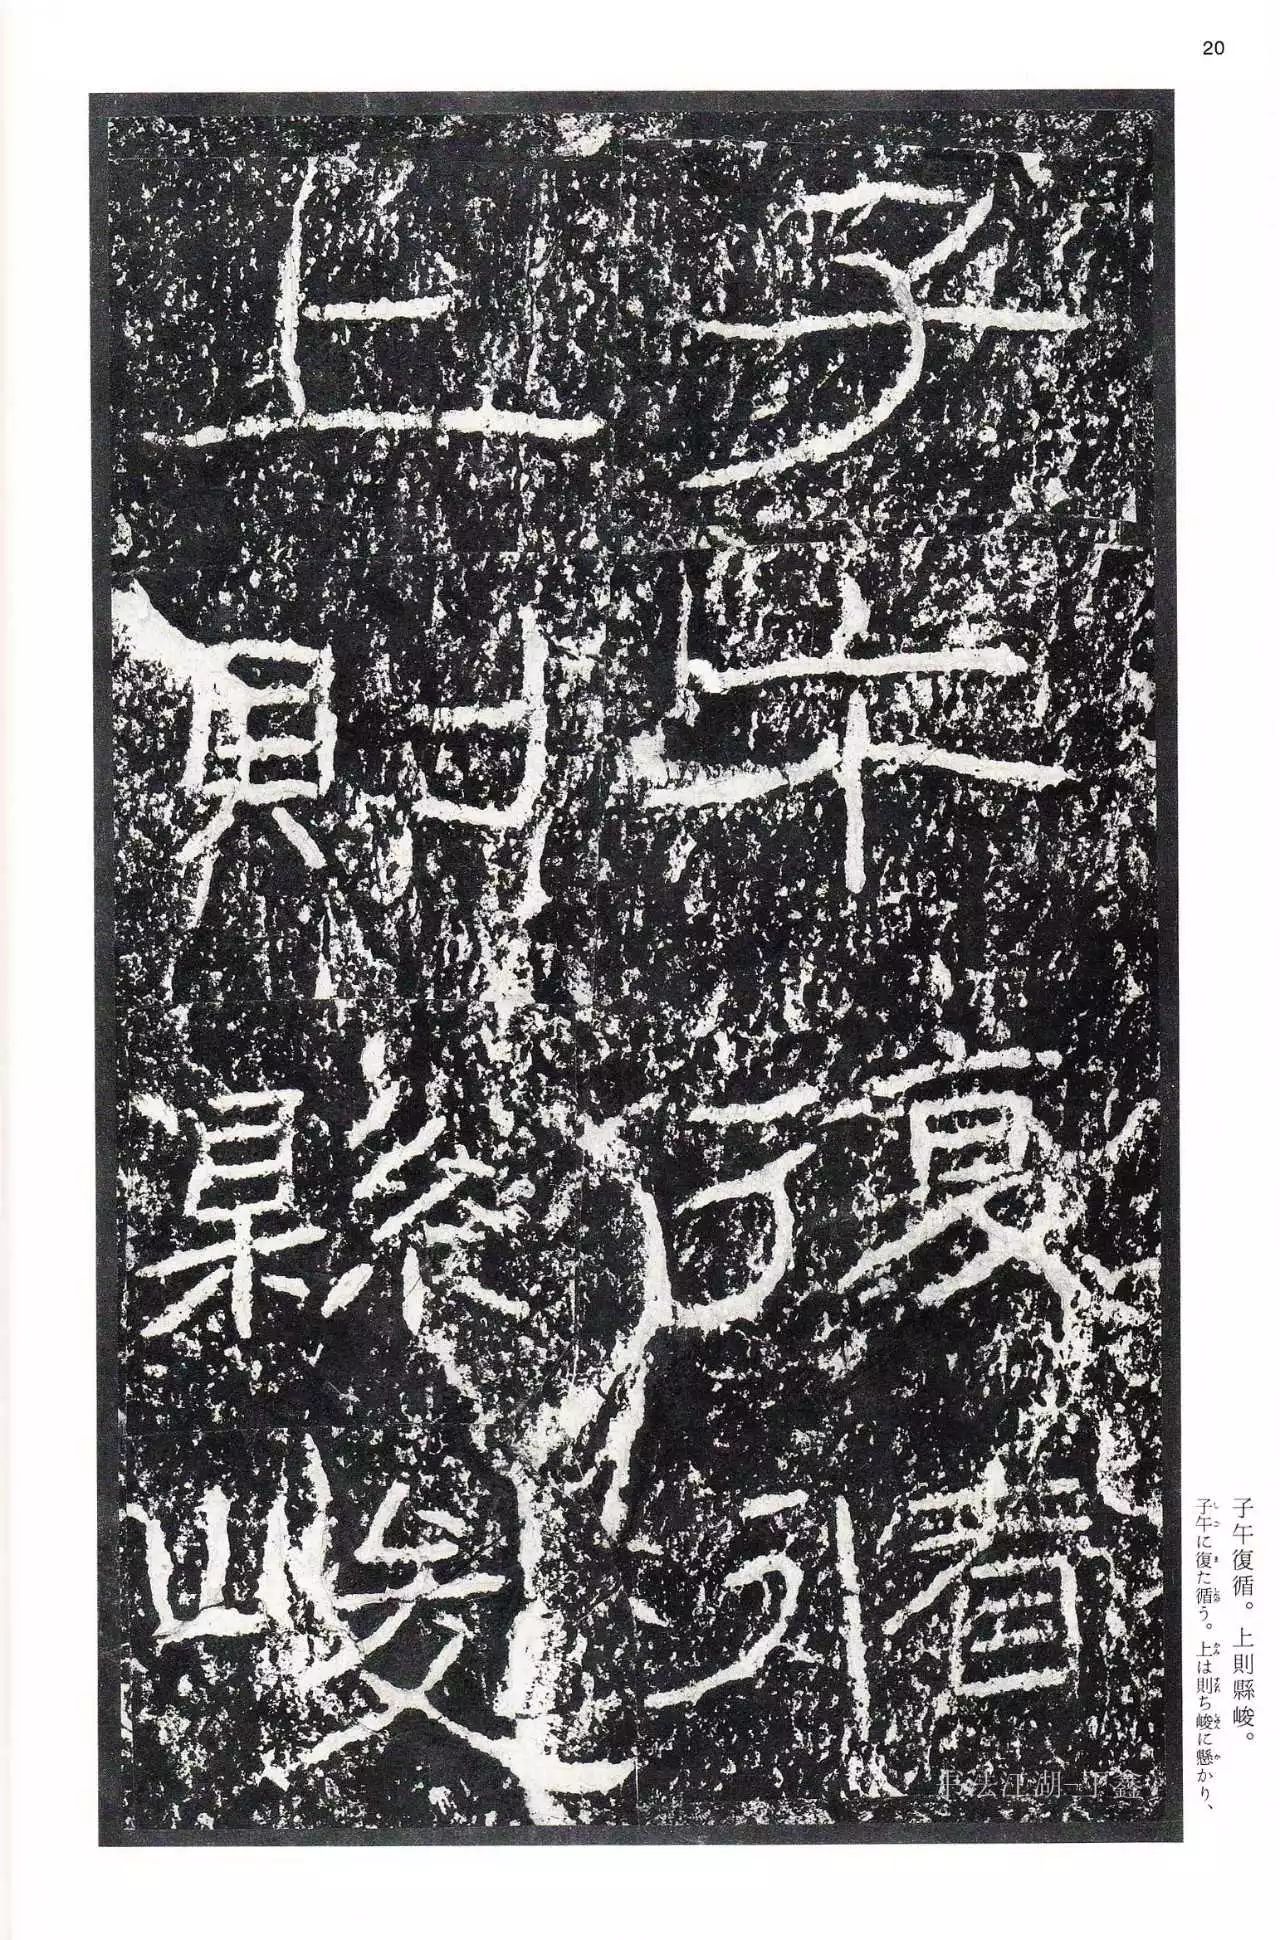 20
子午復循
上則縣峻
子午復循。上則縣峻。
子午に復た循う。上は則ち峻に懸かり、
书法江湖-于鑫